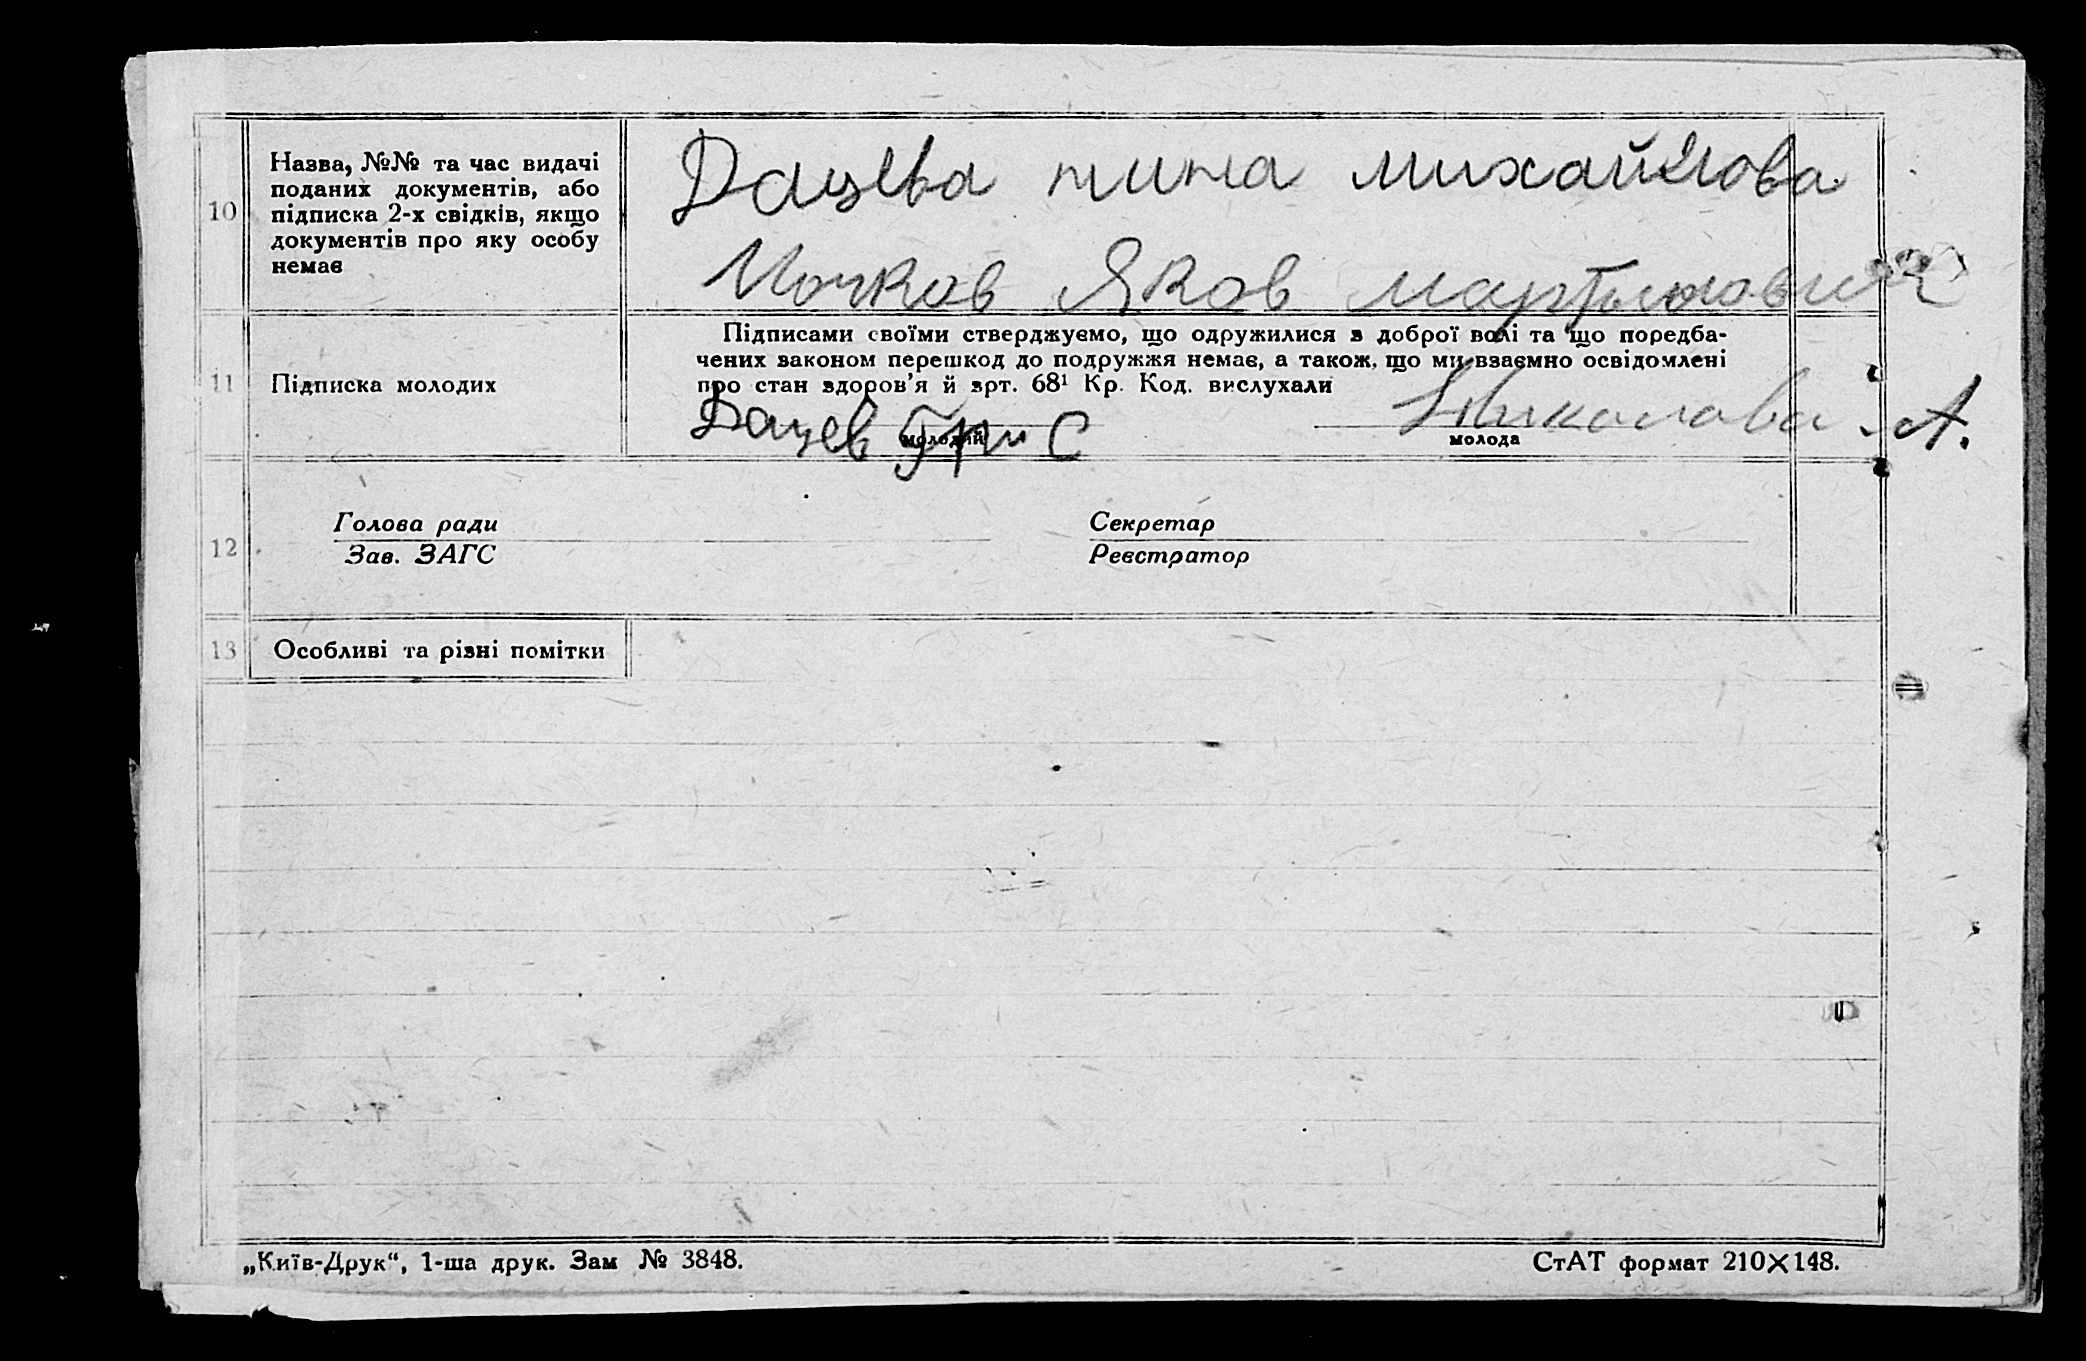 10
Назва, №№ та час видачі
поданих документів, або
підписка 2-х свідків, якщо
документів про яку особу
немає
Дацева тина михайлова
Яков
11
Підписка молодих
Підписами своїми стверджуємо, що одружилися з доброї волі та що поредба-
чених законом перешкод до подружжя немає, а також, що ми взаємно освідомлені
про стан здоров'я й арт. 68¹ Кр. Код. вислухали
Дацев Гри С
Николова А.
молодий
молода
12
Голова ради
Зав. ЗАГС
Секретар
Реєстратор
13
Особливі та різні помітки
„Київ-Друк“, 1-ша друк. Зам № 3848.
СтАТ формат 210×148.